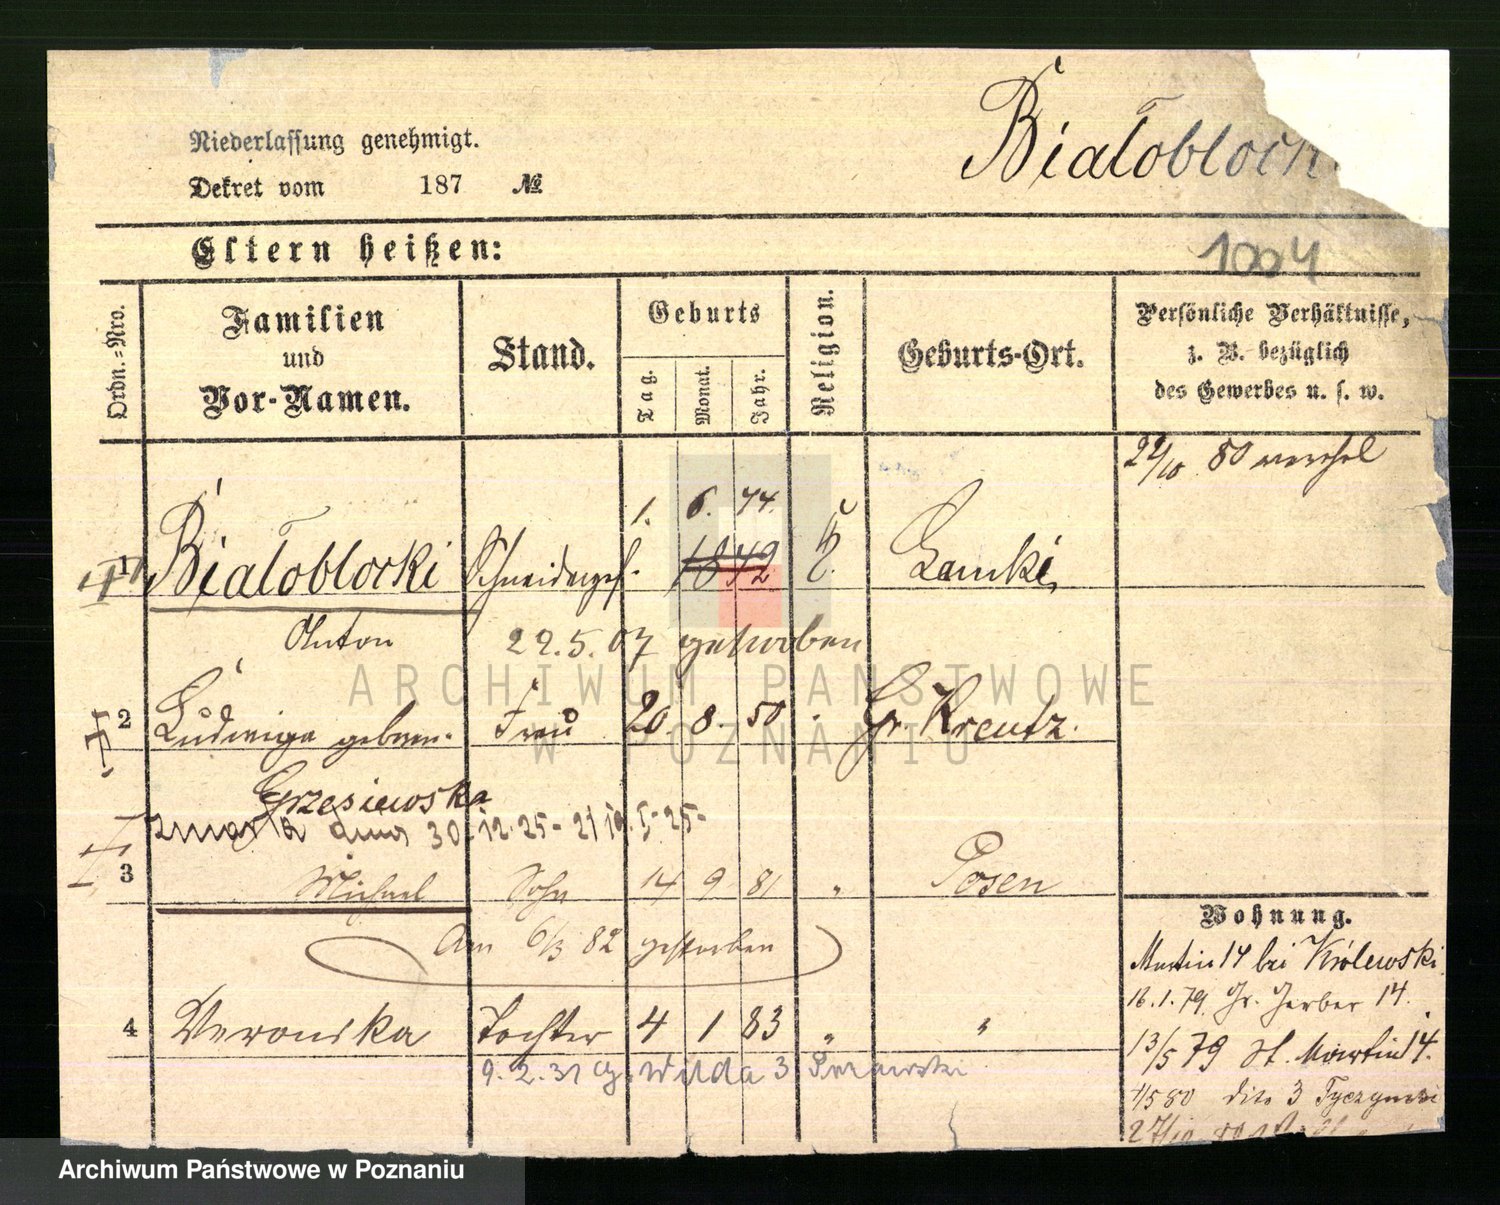 Białobłock
Niederlassung genehmigt.
Dekret vom 187 №
Eltern heißen:
1004
Ordn.-Nro.
Familien
und
Vor-Namen.
Stand.
Geburts
Tag.
Monat.
Jahr.
Religion.
Geburts-Ort.
Persönliche Verhältnisse,
z. B. bezüglich
des Gewerbes u. s. w.
80
1. 6. 44.
1 Białobłocki Schneiderges. 1842 k.
Anton 22.5.07 gestorben
2 Ludwiga geboren. Frau 20. 8. 50 Gr. Kreutz.
Grzesiewska
zmarła dnia 30.12.25-
3 Michael Sohn 14 9 81 " Posen
Am 6/3 82 gestorben
4 Veronika Tochter 4 1 83 " "
9.2.31 Wilda 3
Wohnung.
Martin 14 bei Królewski
16.1.79. Gr. Gerber 14.
13/5 79 St. Martin 14.
4/5 80 dito 3 Tyczynski
ARCHIWUM PAŃSTWOWE
W POZNANIU
Archiwum Państwowe w Poznaniu